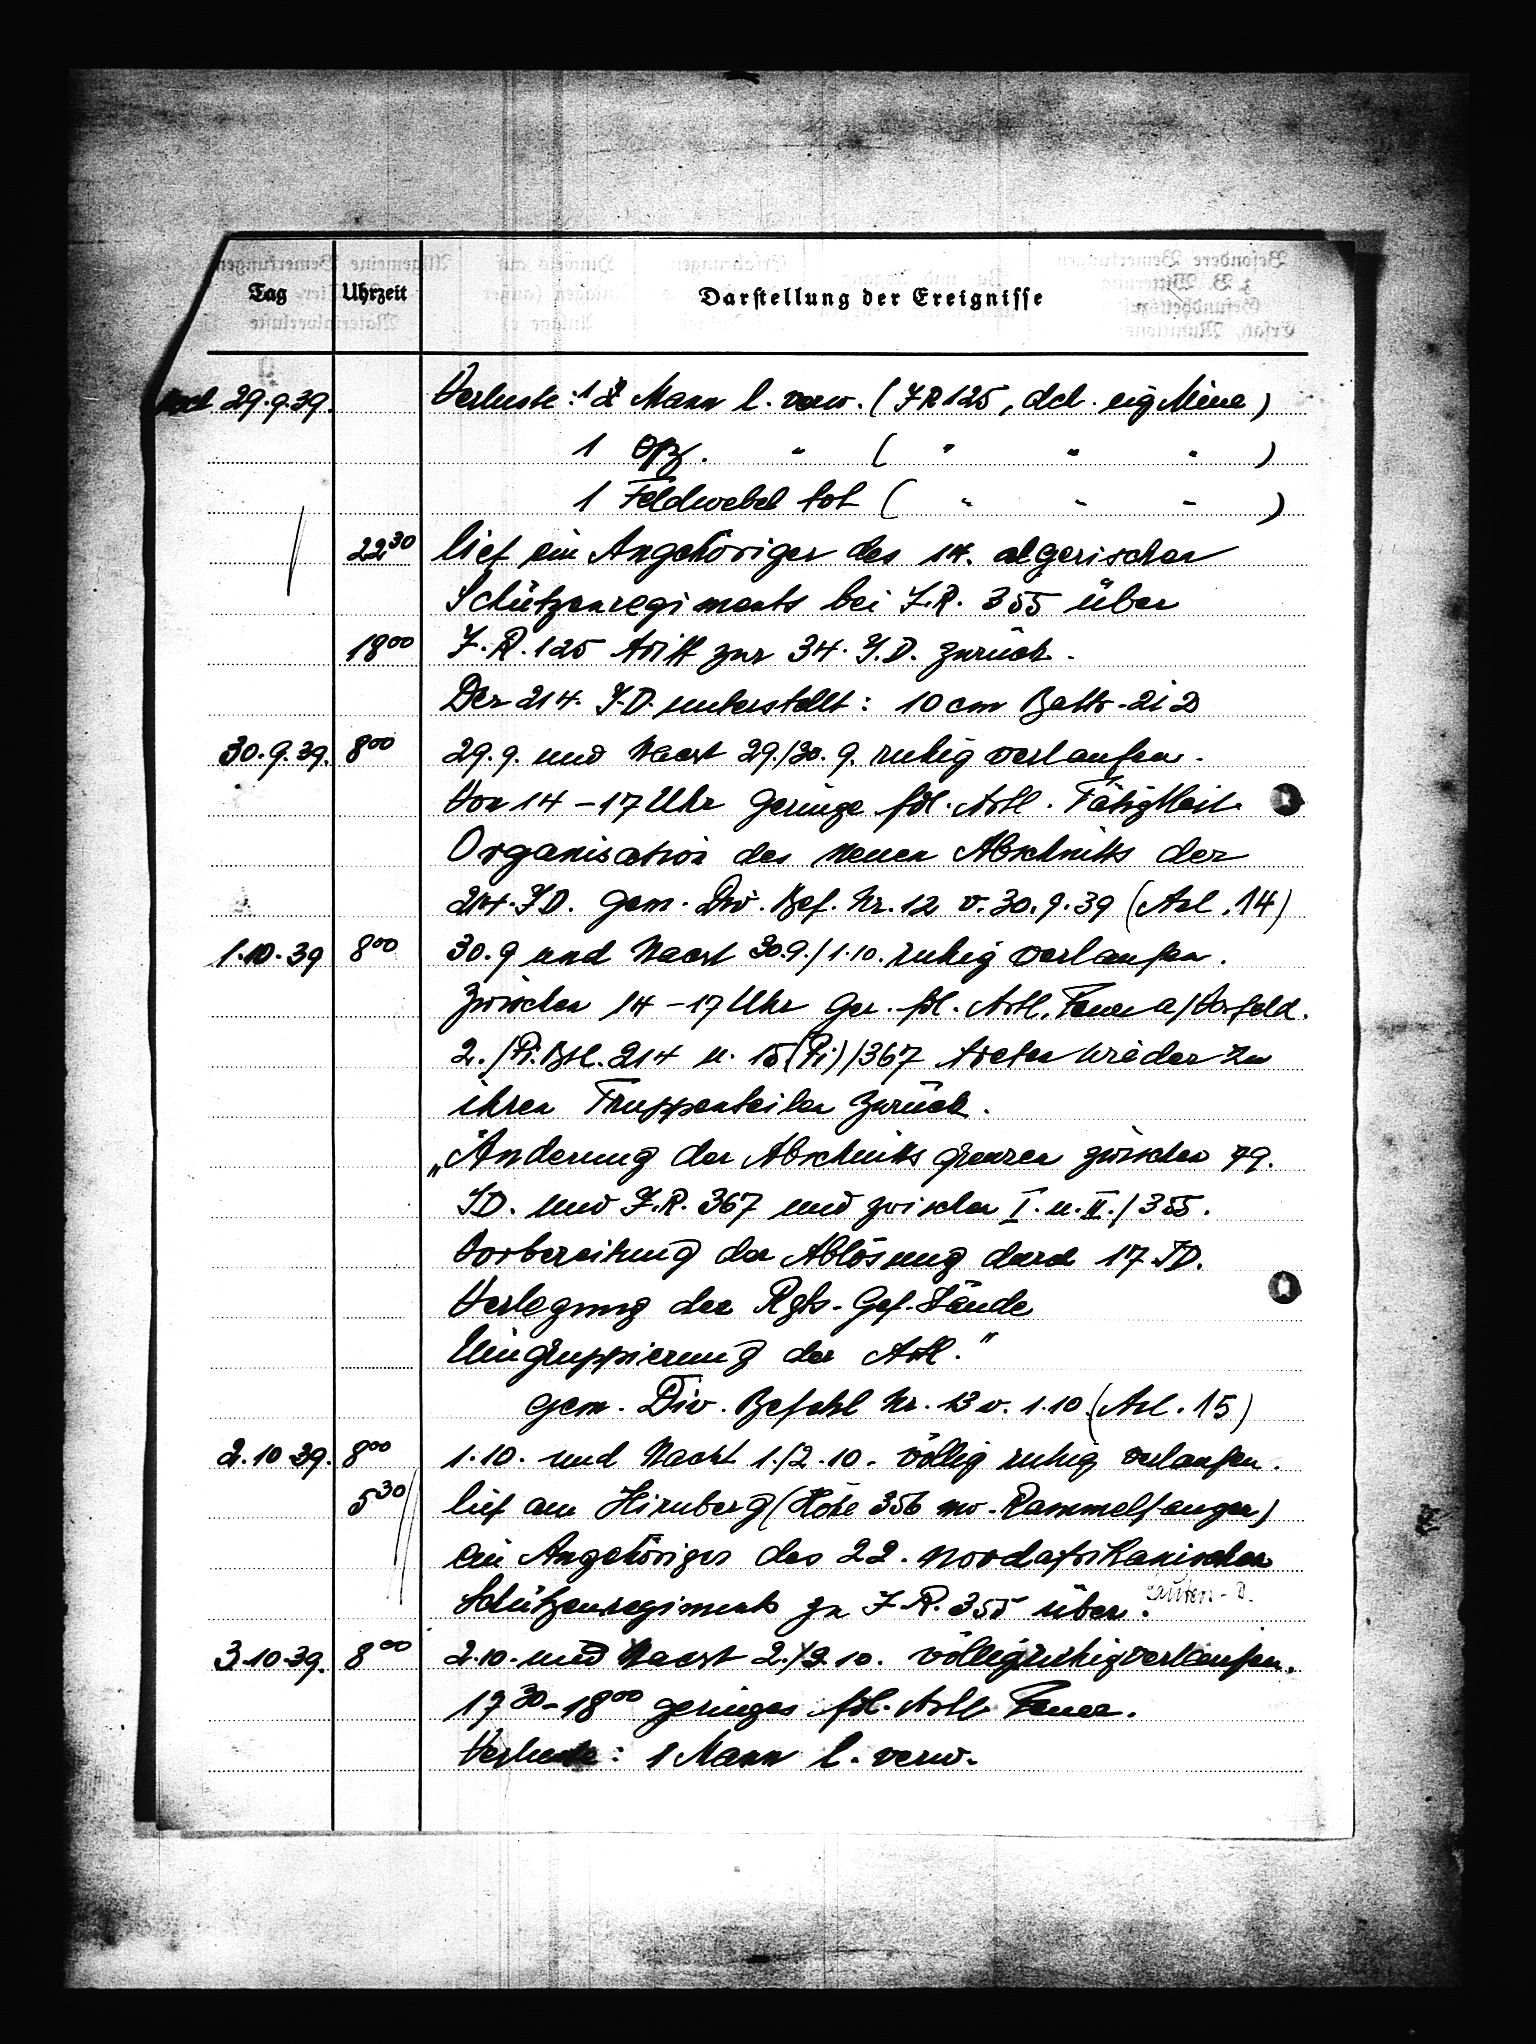 Tag Uhrzeit Darstellung der Ereignisse
noch 29.9.39. Verluste: 1 Mann l. verw. (J.R. 125, dch. eig. Mine)
1 Offz. " ( " " " )
1 Feldwebel tot ( " " " )
22 30 lief ein Angehöriger des 14. algerischen
Schützenregiments bei J.R. 355 über
18 00 J.R. 125 tritt zur 34. J.D. zurück.
Der 214. J.D. unterstellt: 10 cm Battr.
30.9.39. 8 00 29.9. und Nacht 29./30.9. ruhig verlaufen.
Von 14 – 17 Uhr geringe fdl. Artl. Tätigkeit
Organisation des neuen Abschnitts der
214. J.D. gem. Div. Bef. Nr. 12 v. 30.9.39 (Anl. 14)
1.10.39 8 00 30.9 und Nacht 30.9./1.10. ruhig verlaufen.
Zwischen 14 – 17 Uhr ger. fdl. Artl. Feuer a/Vorfeld.
2./Pi. Btl. 214 u. 15(Pi)/367 treten wieder zu
ihren Truppenteilen zurück.
„Änderung der Abschnittsgrenzen zwischen 79.
J.D. und J.R. 367 und zwischen I. u. II./355.
Vorbereitung der Ablösung durch 17. J.D.
Verlegung der Rgts. Gef. Stände
Umgruppierung der Artl."
gem. Div. Befehl Nr. 13 v. 1.10. (Anl. 15)
2.10.39. 8 00 1.10. und Nacht 1./2.10. völlig ruhig verlaufen.
5 30 lief am Hirnberg (Höhe 356 nw. Rammelfangen)
ein Angehöriger des 22. nordafrikanischen
Schützenregiments zu J.R. 355 über.
3.10.39. 8 00 2.10. und Nacht 2./3.10. völlig ruhig verlaufen.
17 30 – 18 00 geringes fdl. Artl. Feuer.
Verluste: 1 Mann l. verw.